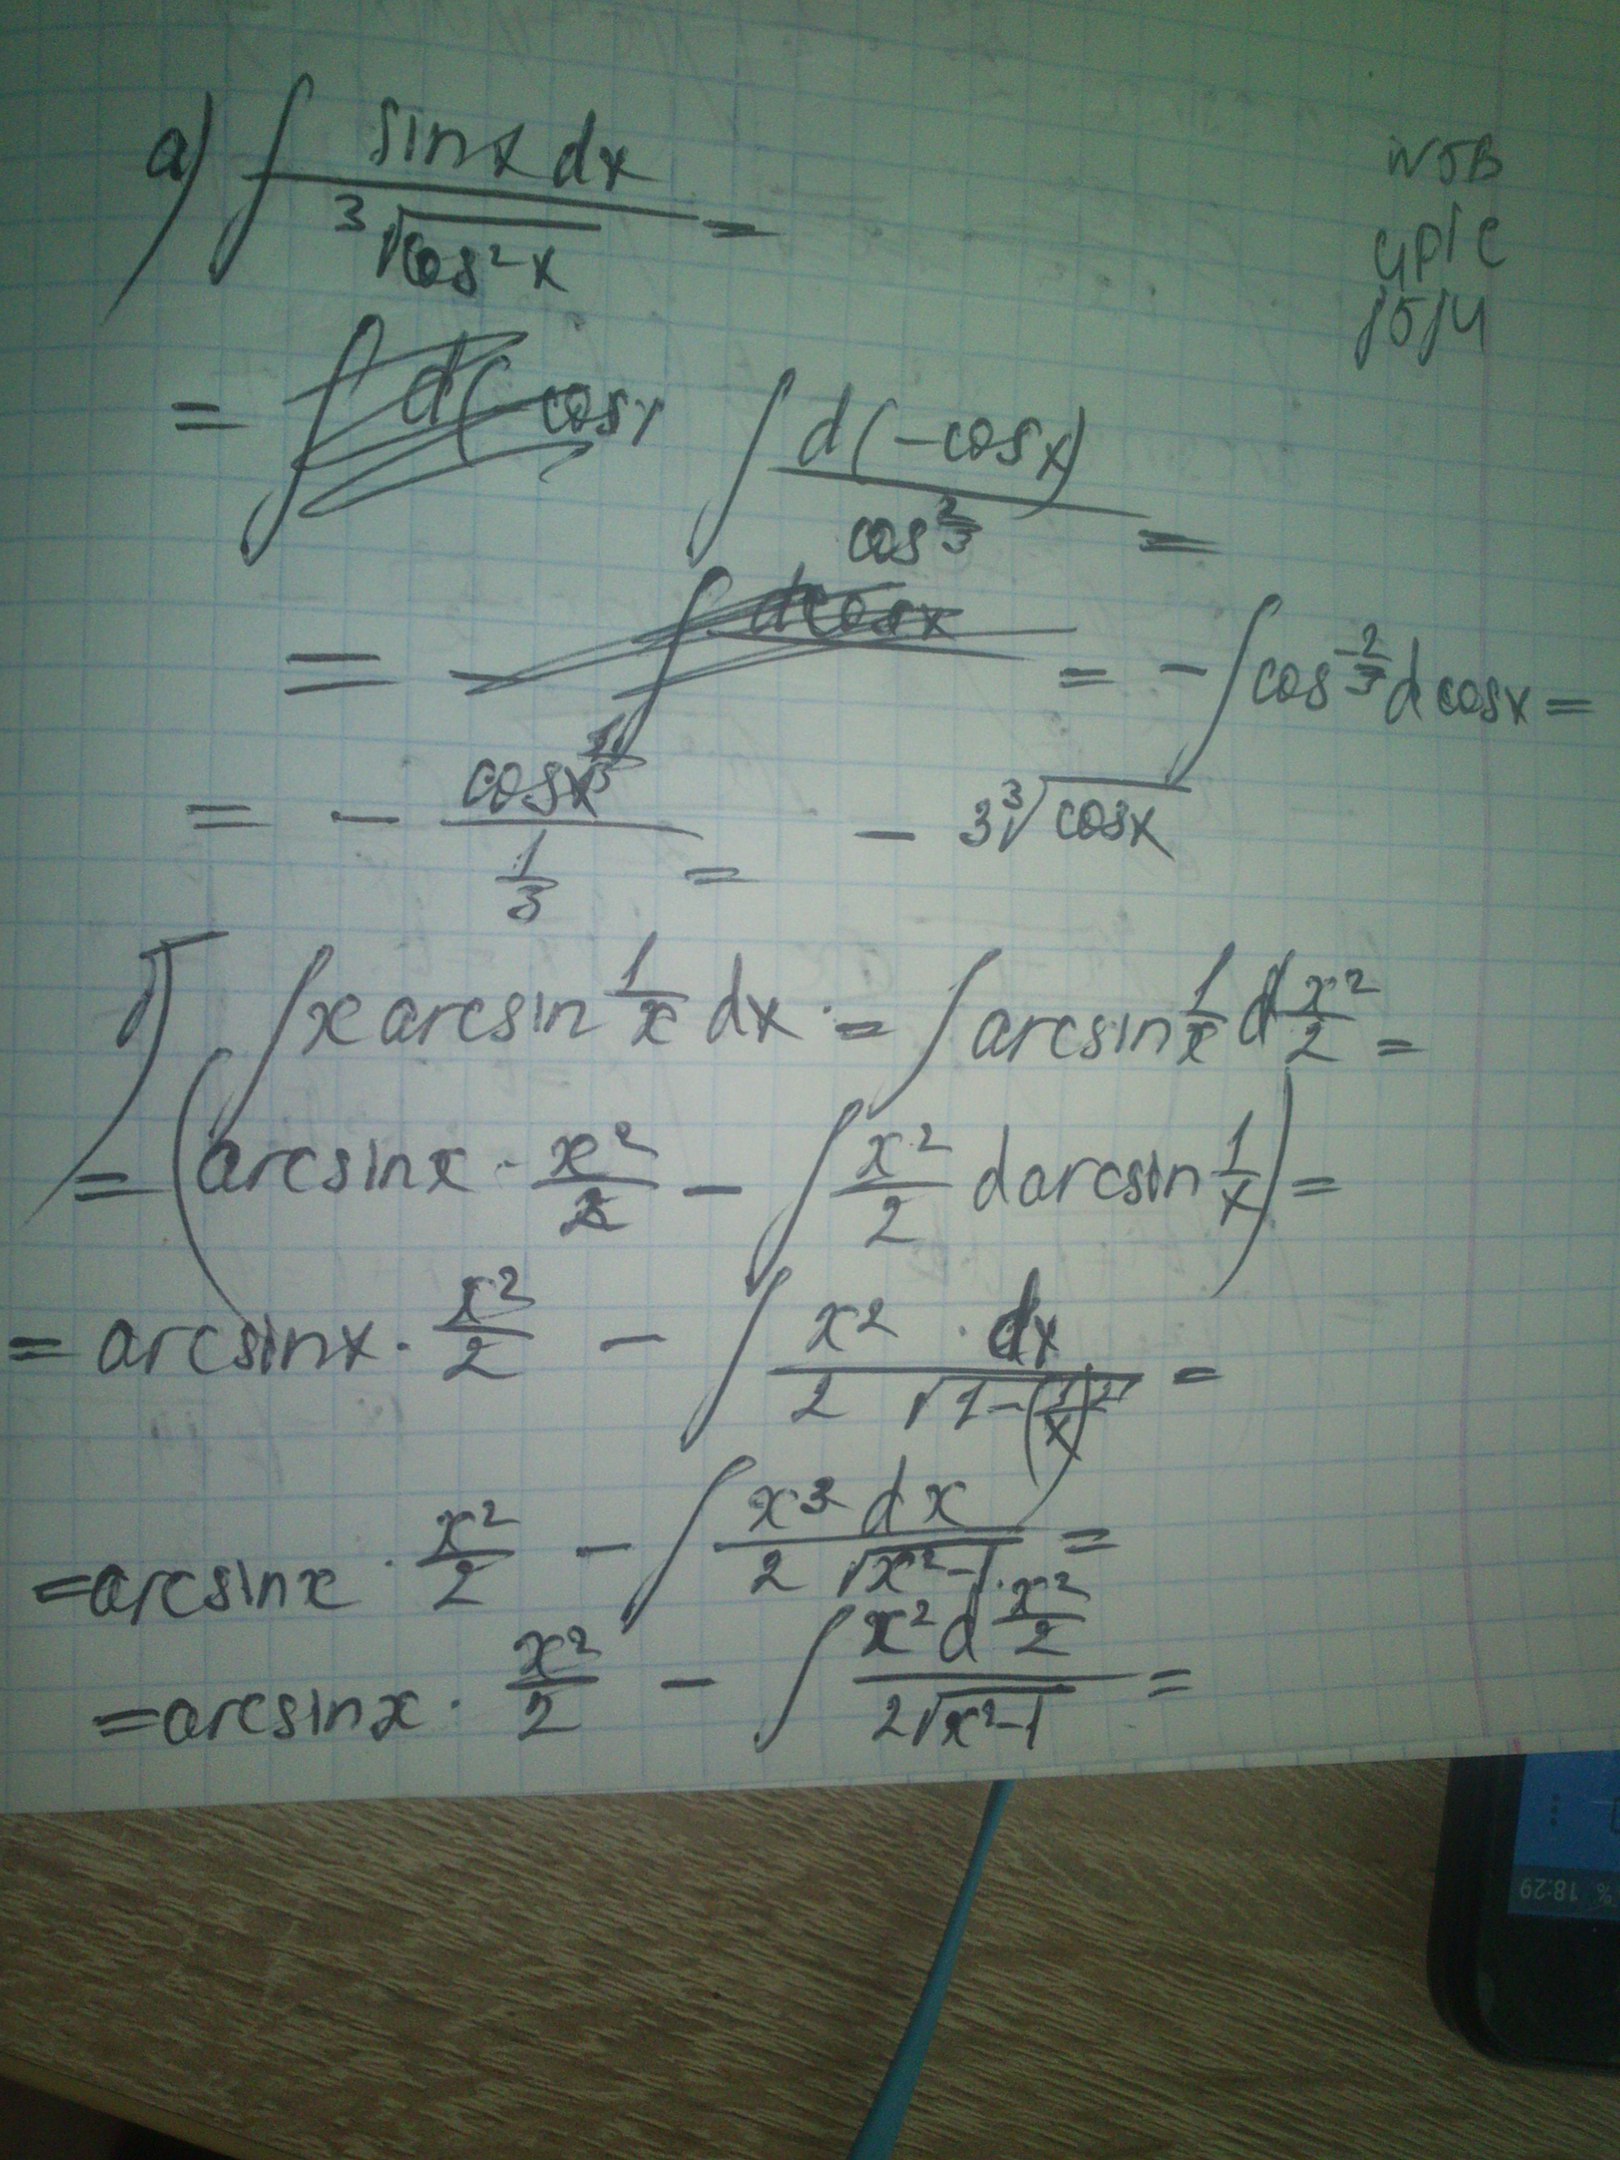 a) ∫ sinx dx / ³√cos²x =
= ∫ d(-cosx ∫ d(-cosx) / cos^(2/3) =
= - ∫ dcosx = - ∫ cos^(-2/3) d cosx =
= - cosx^(1/3) / (1/3) = - 3 ³√cosx
б) ∫ x arcsin 1/x dx = ∫ arcsin 1/x d x²/2 =
= (arcsinx · x²/2 - ∫ x²/2 d arcsin 1/x) =
= arcsinx · x²/2 - ∫ x² · dx / 2 √1-(1/x)² =
= arcsinx · x²/2 - ∫ x³ dx / 2 √x²-1 =
= arcsinx · x²/2 - ∫ x² d x²/2 / 2√x²-1 =
18:29